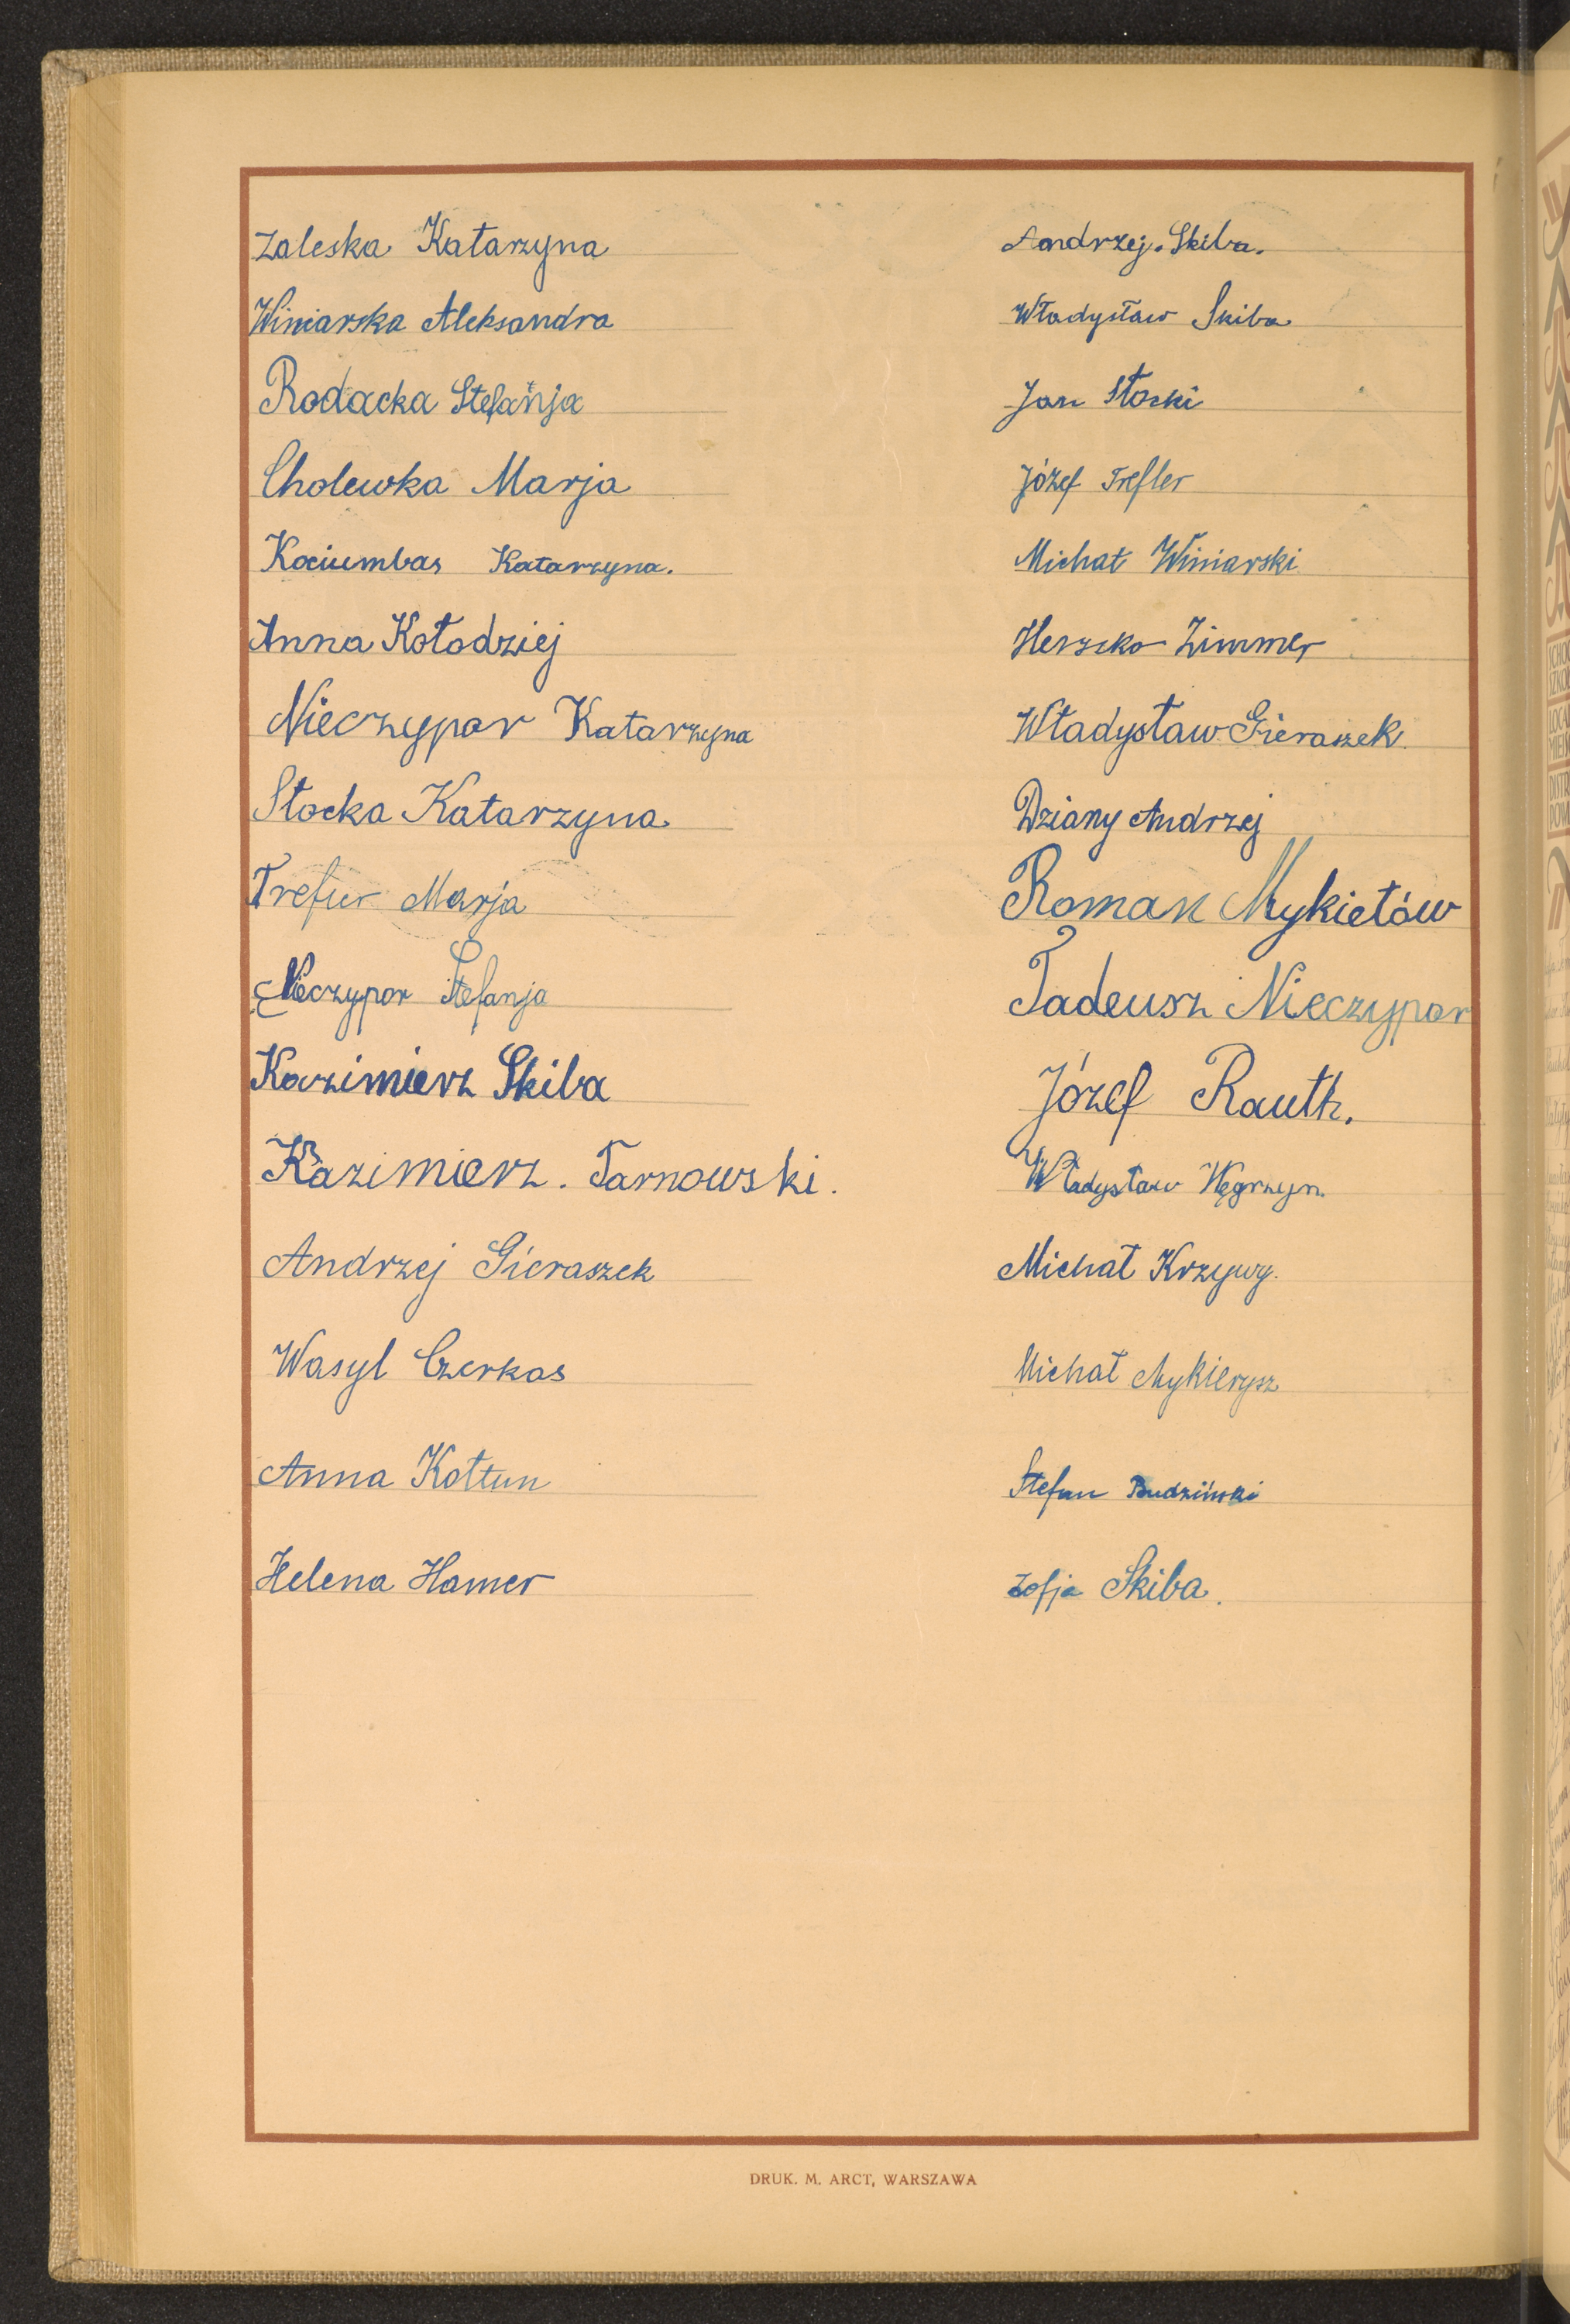 Zaleska Katarzyna
Winiarska Aleksandra
Rodacka Stefanja
Cholewka Marja
Kociumbas Katarzyna.
Anna Kołodziej
Nieczypor Katarzyna
Stocka Katarzyna
Marja
Nieczypor Stefanja
Kazimierz Skiba
Kazimierz. Tarnowski.
Andrzej Gieraszek
Wasyl Czerkas
Anna Kołtun
Helena Hamer
Andrzej. Skiba.
Władysław Skiba
Jan Stocki
Józef Trefler
Michał Winiarski
Herszko Zimmer
Władysław Gieraszek.
Dziany Andrzej
Roman Mykietów
Tadeusz Nieczypor
Józef Rauth.
Władysław Węgrzyn.
Michał Krzywy.
Michał Mykierysz
Stefan Budziński
Zofja Skiba.
DRUK. M. ARCT, WARSZAWA